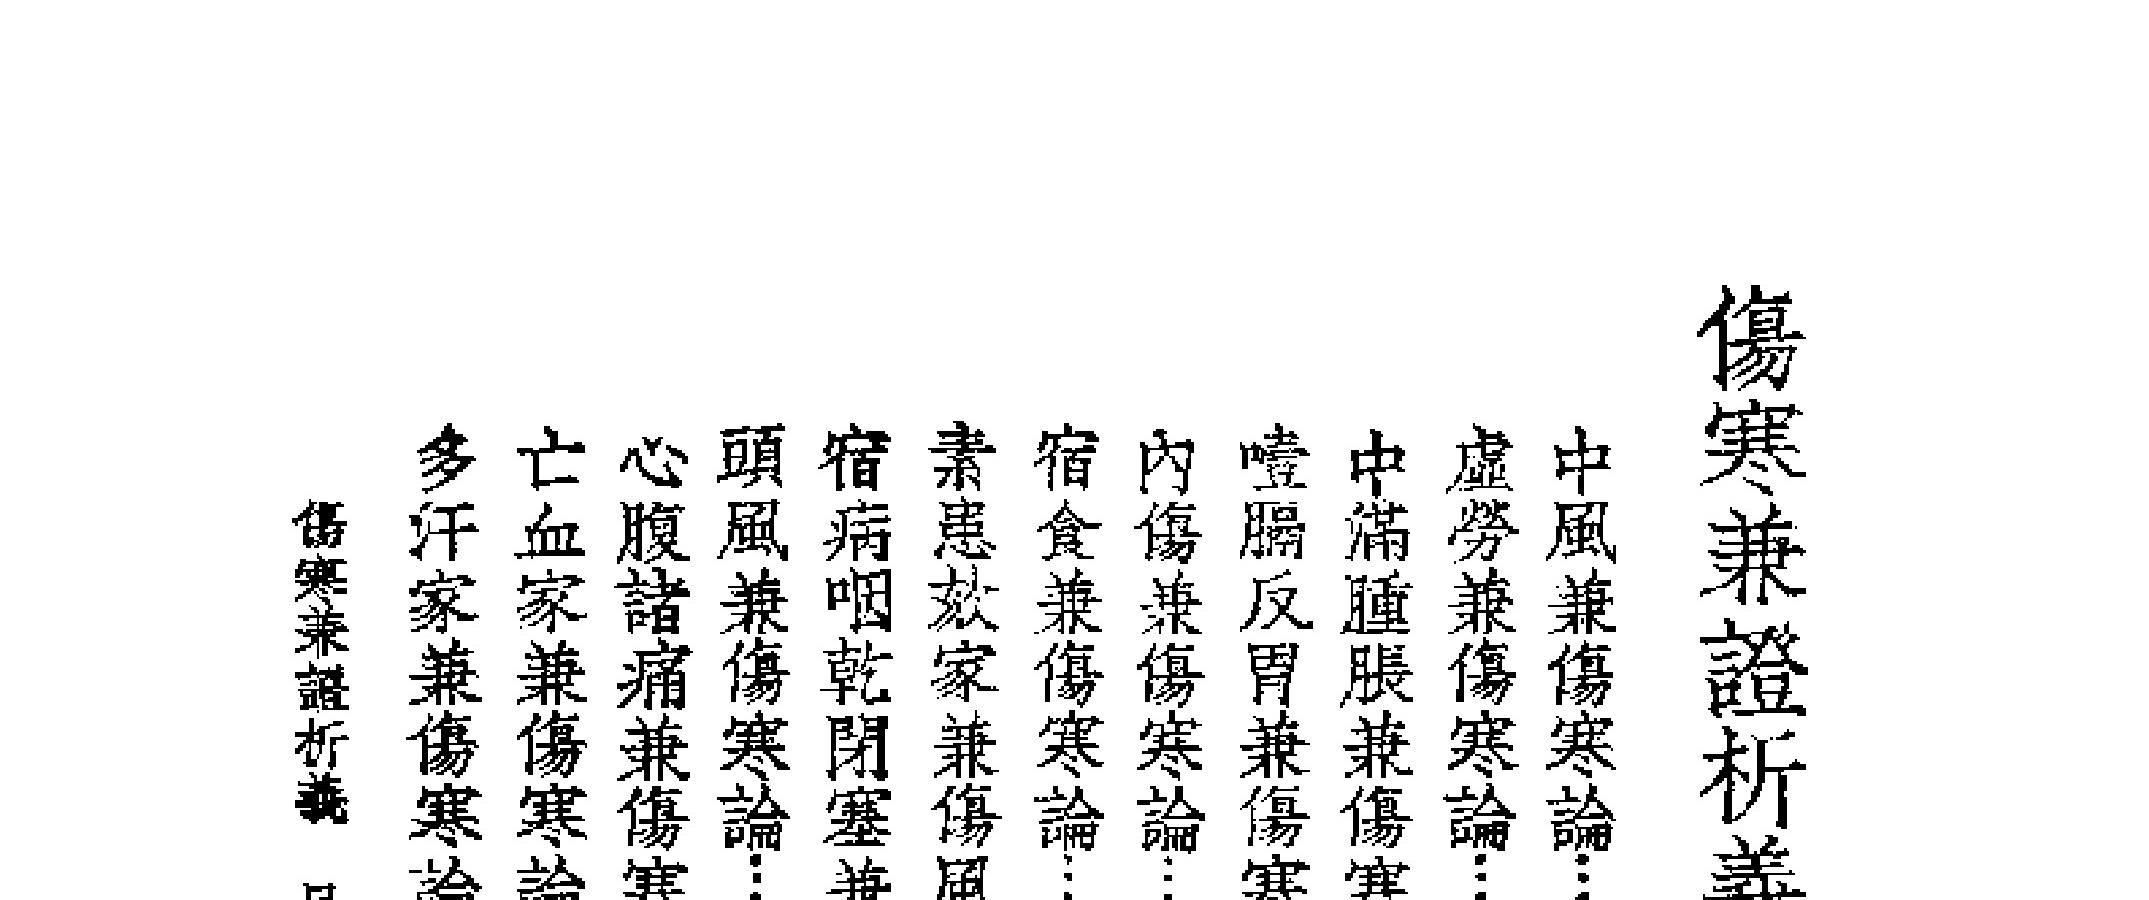 傷寒兼證析義
中風兼傷寒論…
虛勞兼傷寒論…
中滿腫脹兼傷寒
噎膈反胃兼傷寒
內傷兼傷寒論…
宿食兼傷寒論…
素患欬家兼傷風
宿病咽乾閉塞兼
頭風兼傷寒論…
心腹諸痛兼傷寒
亡血家兼傷寒論
多汗家兼傷寒論
傷寒兼證析義